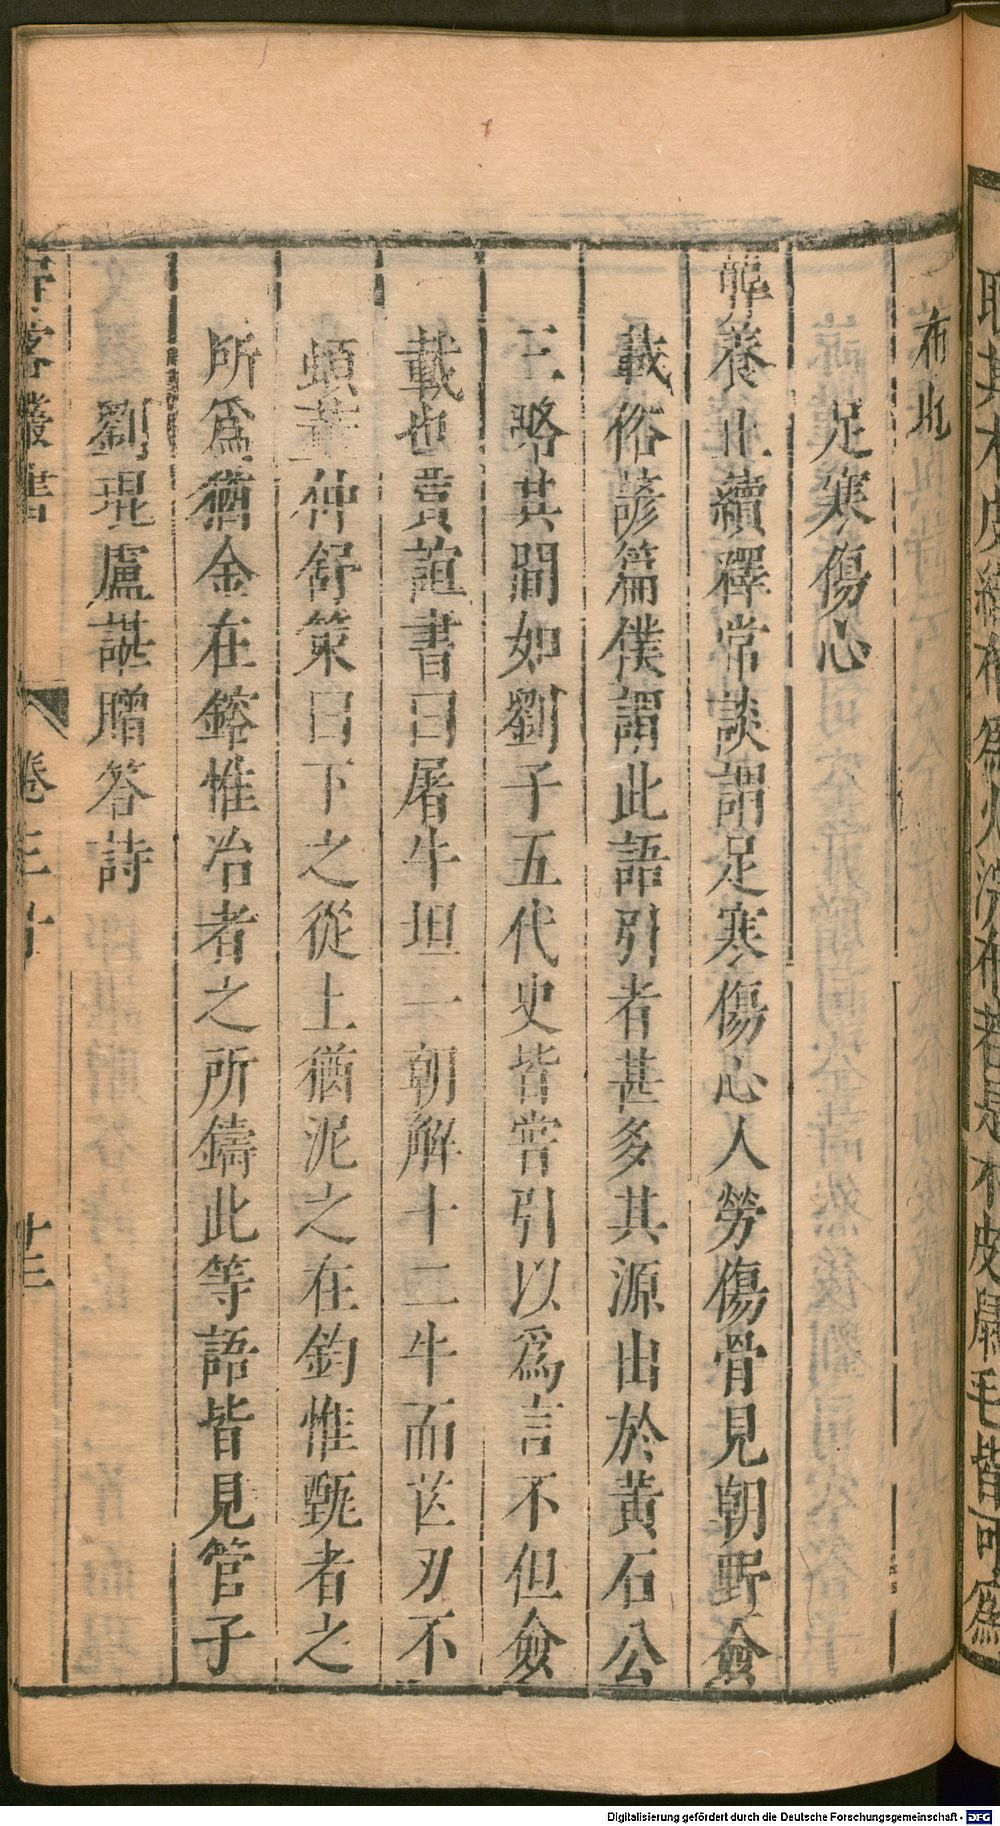 取其木皮績布爲火浣布者是木皮鼠毛皆可爲
布也
足寒傷心
龔養止續釋常談謂足寒傷心人勞傷骨見朝野僉
載俗諺篇僕謂此語引者甚多其源出於黃石公
三略其間如劉子五代史皆嘗引以爲言不但僉
載也賈誼書曰屠牛坦一朝解十二牛而芒刃不
頓董仲舒策曰下之從上猶泥之在鈞惟甄者之
所爲猶金在鎔惟冶者之所鑄此等語皆見管子
劉琨盧諶贈答詩
野客叢書
卷三十
十三
Digitalisierung gefördert durch die Deutsche Forschungsgemeinschaft - DFG